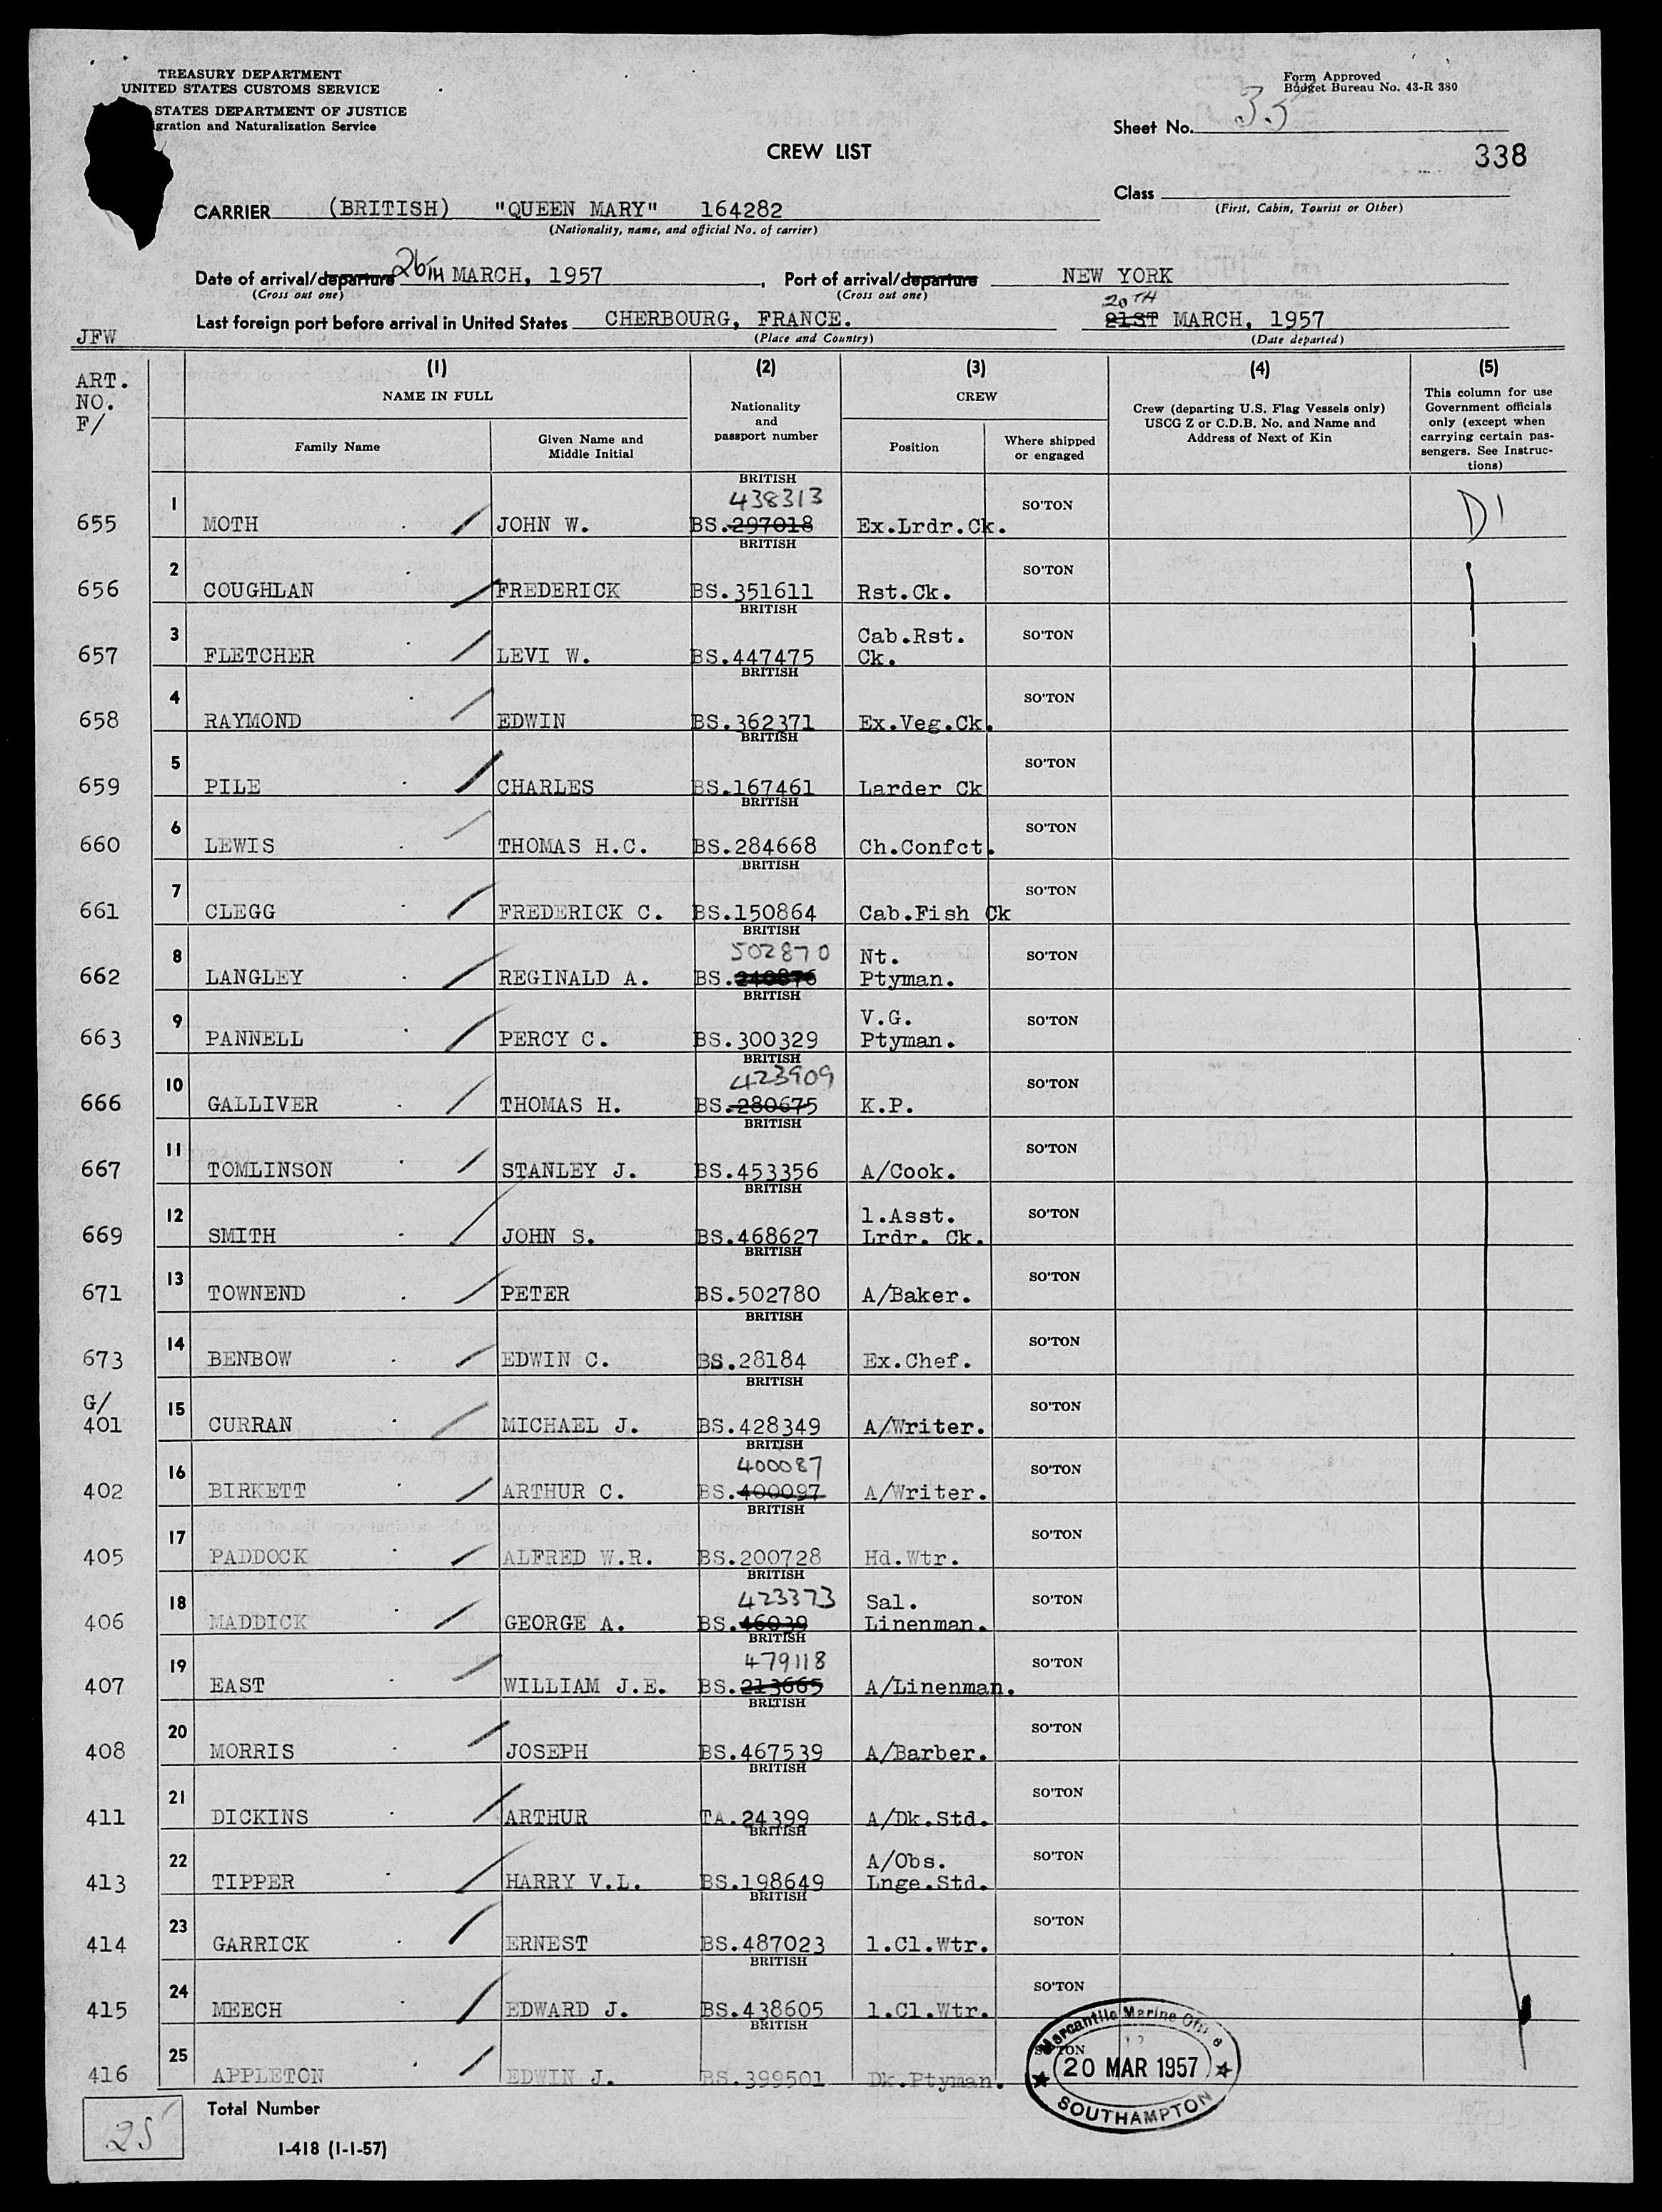 TREASURY DEPARTMENT
UNITED STATES CUSTOMS SERVICE
STATES DEPARTMENT OF JUSTICE
gration and Naturalization Service
Form Approved
Budget Bureau No. 43-R 380
Sheet No. 35
CREW LIST
338
Class
(First, Cabin, Tourist or Other)
CARRIER (BRITISH) "QUEEN MARY" 164282
(Nationality, name, and official No. of carrier)
Date of arrival/departure 26TH MARCH, 1957, Port of arrival/departure NEW YORK
(Cross out one) (Cross out one)
20TH
Last foreign port before arrival in United States CHERBOURG, FRANCE. 21ST MARCH, 1957
(Place and Country) (Date departed)
JFW
ART.
NO.
F/
(1) (2) (3) (4) (5)
NAME IN FULL
Family Name
Given Name and
Middle Initial
Nationality
and
passport number
CREW
Position
Where shipped
or engaged
Crew (departing U.S. Flag Vessels only)
USCG Z or C.D.B. No. and Name and
Address of Next of Kin
This column for use
Government officials
only (except when
carrying certain pas-
sengers. See Instruc-
tions)
BRITISH
438313
1 SO'TON D1
655 MOTH JOHN W. BS.297018 Ex.Lrdr.Ck.
BRITISH
2 SO'TON
656 COUGHLAN FREDERICK BS.351611 Rst.Ck.
BRITISH
3 Cab.Rst. SO'TON
657 FLETCHER LEVI W. BS.447475 Ck.
BRITISH
4 SO'TON
658 RAYMOND EDWIN BS.362371 Ex.Veg.Ck.
BRITISH
5 SO'TON
659 PILE CHARLES BS.167461 Larder Ck
BRITISH
6 SO'TON
660 LEWIS THOMAS H.C. BS.284668 Ch.Confct.
BRITISH
7 SO'TON
661 CLEGG FREDERICK C. BS.150864 Cab.Fish Ck
BRITISH
8 502870 Nt. SO'TON
662 LANGLEY REGINALD A. BS. Ptyman.
BRITISH
9 V.G. SO'TON
663 PANNELL PERCY C. BS.300329 Ptyman.
BRITISH
10 423909 SO'TON
666 GALLIVER THOMAS H. BS.280675 K.P.
BRITISH
11 SO'TON
667 TOMLINSON STANLEY J. BS.453356 A/Cook.
BRITISH
12 1.Asst. SO'TON
669 SMITH JOHN S. BS.468627 Lrdr. Ck.
BRITISH
13 SO'TON
671 TOWNEND PETER BS.502780 A/Baker.
BRITISH
14 SO'TON
673 BENBOW EDWIN C. BS.28184 Ex.Chef.
BRITISH
G/
15 SO'TON
401 CURRAN MICHAEL J. BS.428349 A/Writer.
BRITISH
16 400087 SO'TON
402 BIRKETT ARTHUR C. BS.400097 A/Writer.
BRITISH
17 SO'TON
405 PADDOCK ALFRED W.R. BS.200728 Hd.Wtr.
BRITISH
18 423373 Sal. SO'TON
406 MADDICK GEORGE A. BS.46039 Linenman.
BRITISH
19 479118 SO'TON
407 EAST WILLIAM J.E. BS.213665 A/Linenman.
BRITISH
20 SO'TON
408 MORRIS JOSEPH BS.467539 A/Barber.
BRITISH
21 SO'TON
411 DICKINS ARTHUR TA.24399 A/Dk.Std.
BRITISH
22 A/Obs. SO'TON
413 TIPPER HARRY V.L. BS.198649 Lnge.Std.
BRITISH
23 SO'TON
414 GARRICK ERNEST BS.487023 1.Cl.Wtr.
BRITISH
24 SO'TON
415 MEECH EDWARD J. BS.438605 1.Cl.Wtr.
BRITISH
25 SO'TON
416 APPLETON EDWIN J. BS.399501 Dk.Ptyman.
Mercantile Marine Office
20 MAR 1957
SOUTHAMPTON
25 Total Number
I-418 (1-1-57)